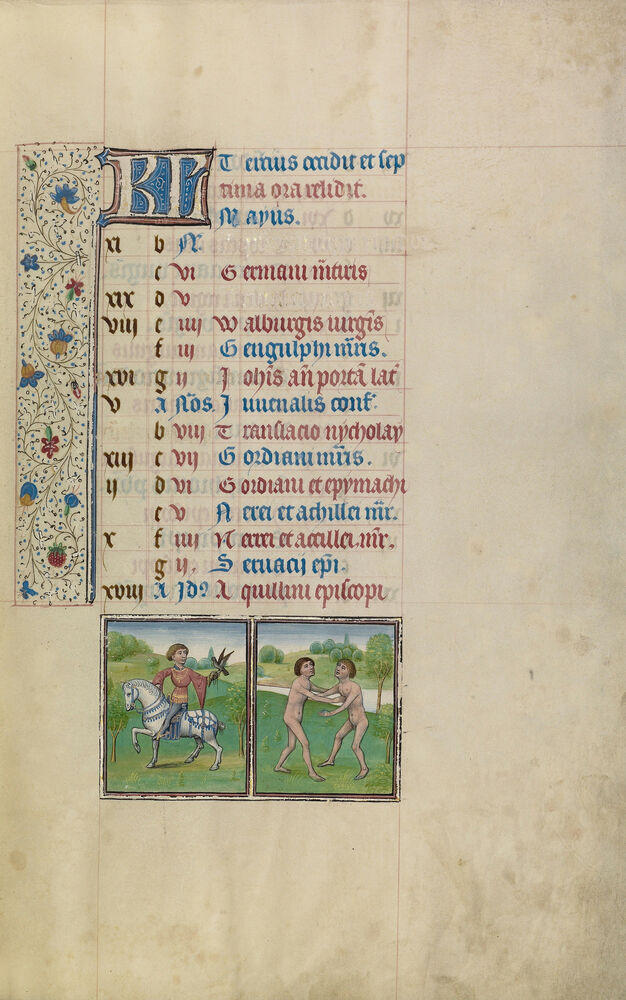 KL Tercius occidit et sep
tima ora relidit.
Mayus.
xi b N.
c vi Germani mr̄iris
xix d v
viii e iiii Walburgis uirgīs
f iii Gengulphi mr̄is.
xvi g ii Johīs an̄ portā lat̄
v A No̅s. Juuenalis conf̄.
b viii Translacio nycholay
xiii c vii Gordiani mr̄is.
ii d vi Gordiani et epymachi
e v Nerei et achillei mr̄.
x f iiii Nerei et accillei. mr̄.
g ii. Seruacij ep̄i.
xviii A Jdꝰ Aquilini episcopi